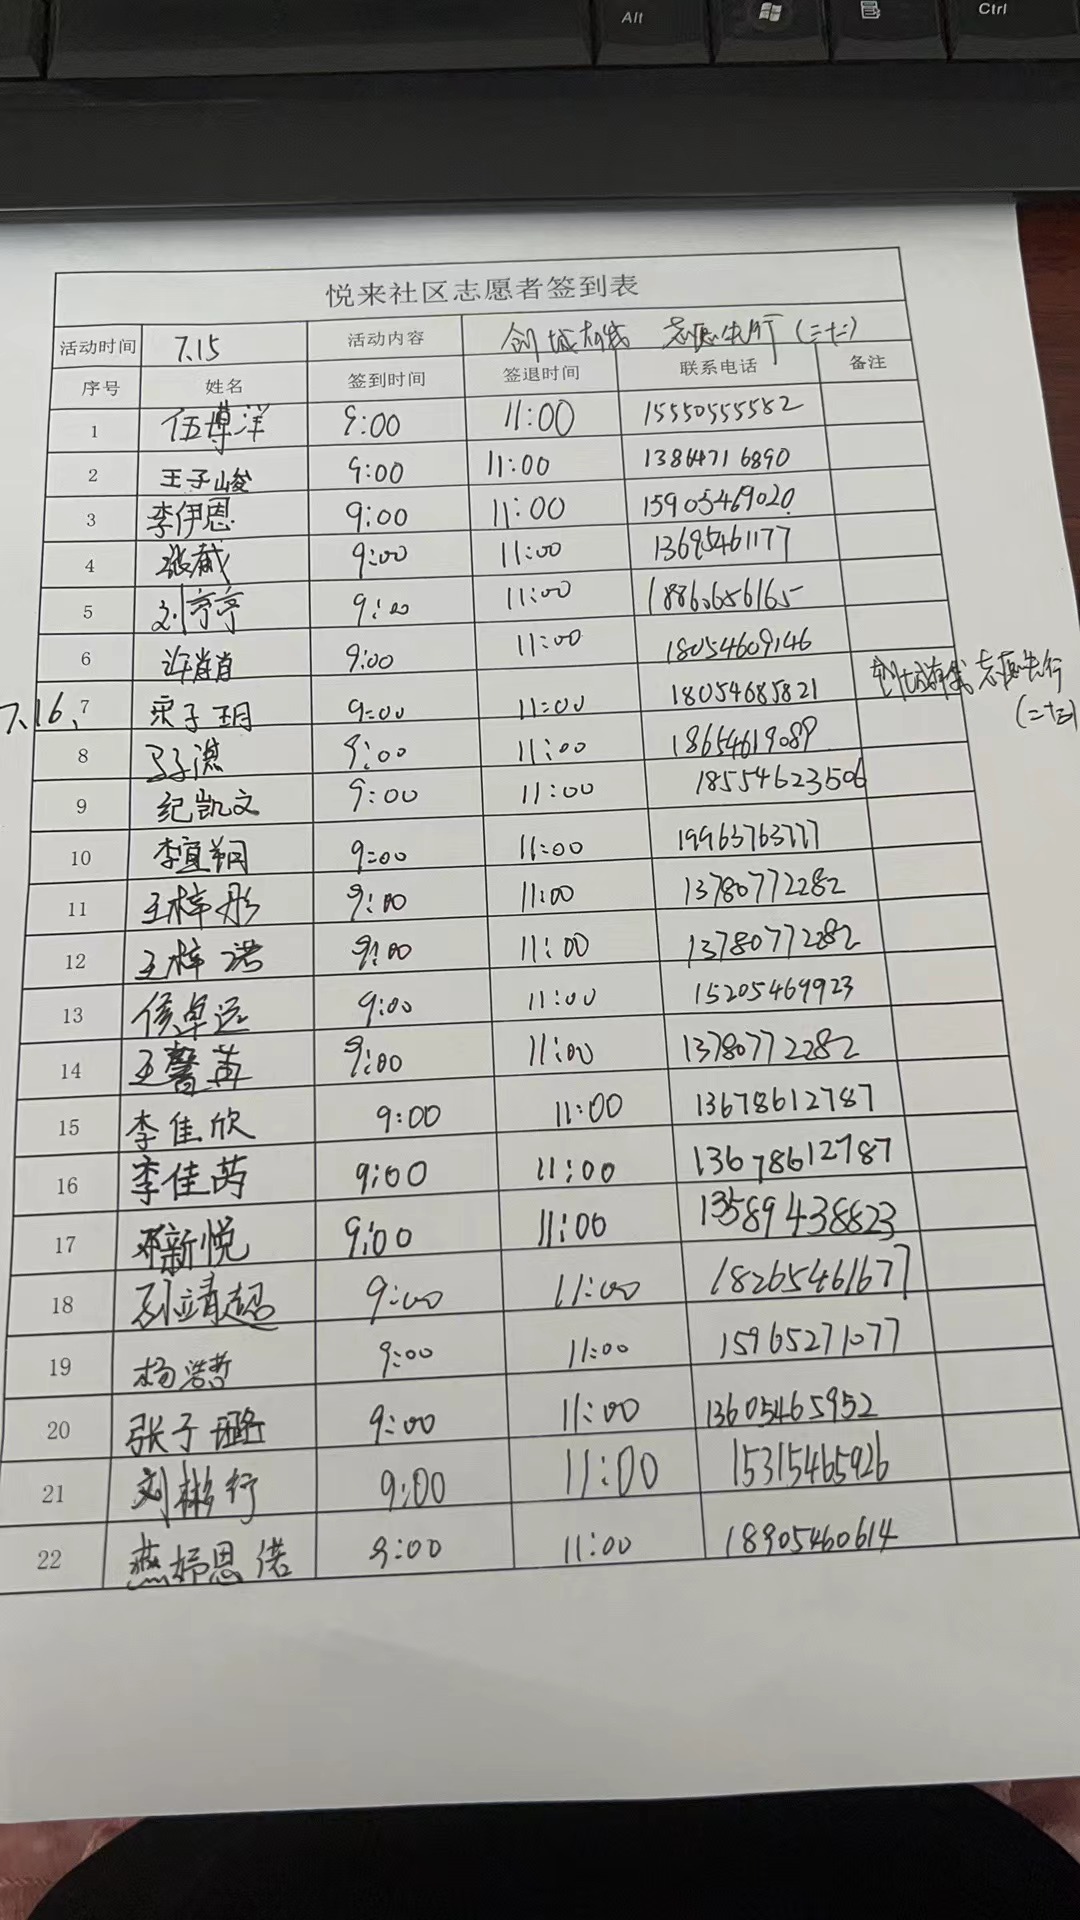 Alt
Ctrl
悦来社区志愿者签到表
活动时间 7.15 活动内容 创城有我 志愿先行(二十二)
序号 姓名 签到时间 签退时间 联系电话 备注
1 伍博洋 9:00 11:00 15550555582
2 王子峻 9:00 11:00 13864716890
3 李伊恩 9:00 11:00 15905469020
4 张 9:00 11:00 13695461177
5 刘亭亭 9:00 11:00 18860656165
6 许肖肖 9:00 11:00 18054609146
7.16. 7 子玥 9:00 11:00 18054685821 创城有我 志愿先行
(二十三)
8 9:00 11:00 18654619089
9 纪凯文 9:00 11:00 18554623506
10 李宜翔 9:00 11:00 19963763777
11 王梓彤 9:00 11:00 13780772282
12 王梓诺 9:00 11:00 13780772282
13 侯卓远 9:00 11:00 15205469923
14 王馨苒 9:00 11:00 13780772282
15 李佳欣 9:00 11:00 13678612787
16 李佳芮 9:00 11:00 13678612787
17 邓新悦 9:00 11:00 13589438823
18 靖超 9:00 11:00 18265461677
19 杨浩哲 9:00 11:00 15965271077
20 张子璐 9:00 11:00 13605465952
21 刘彬行 9:00 11:00 15315465926
22 燕妤恩诺 9:00 11:00 18905460614